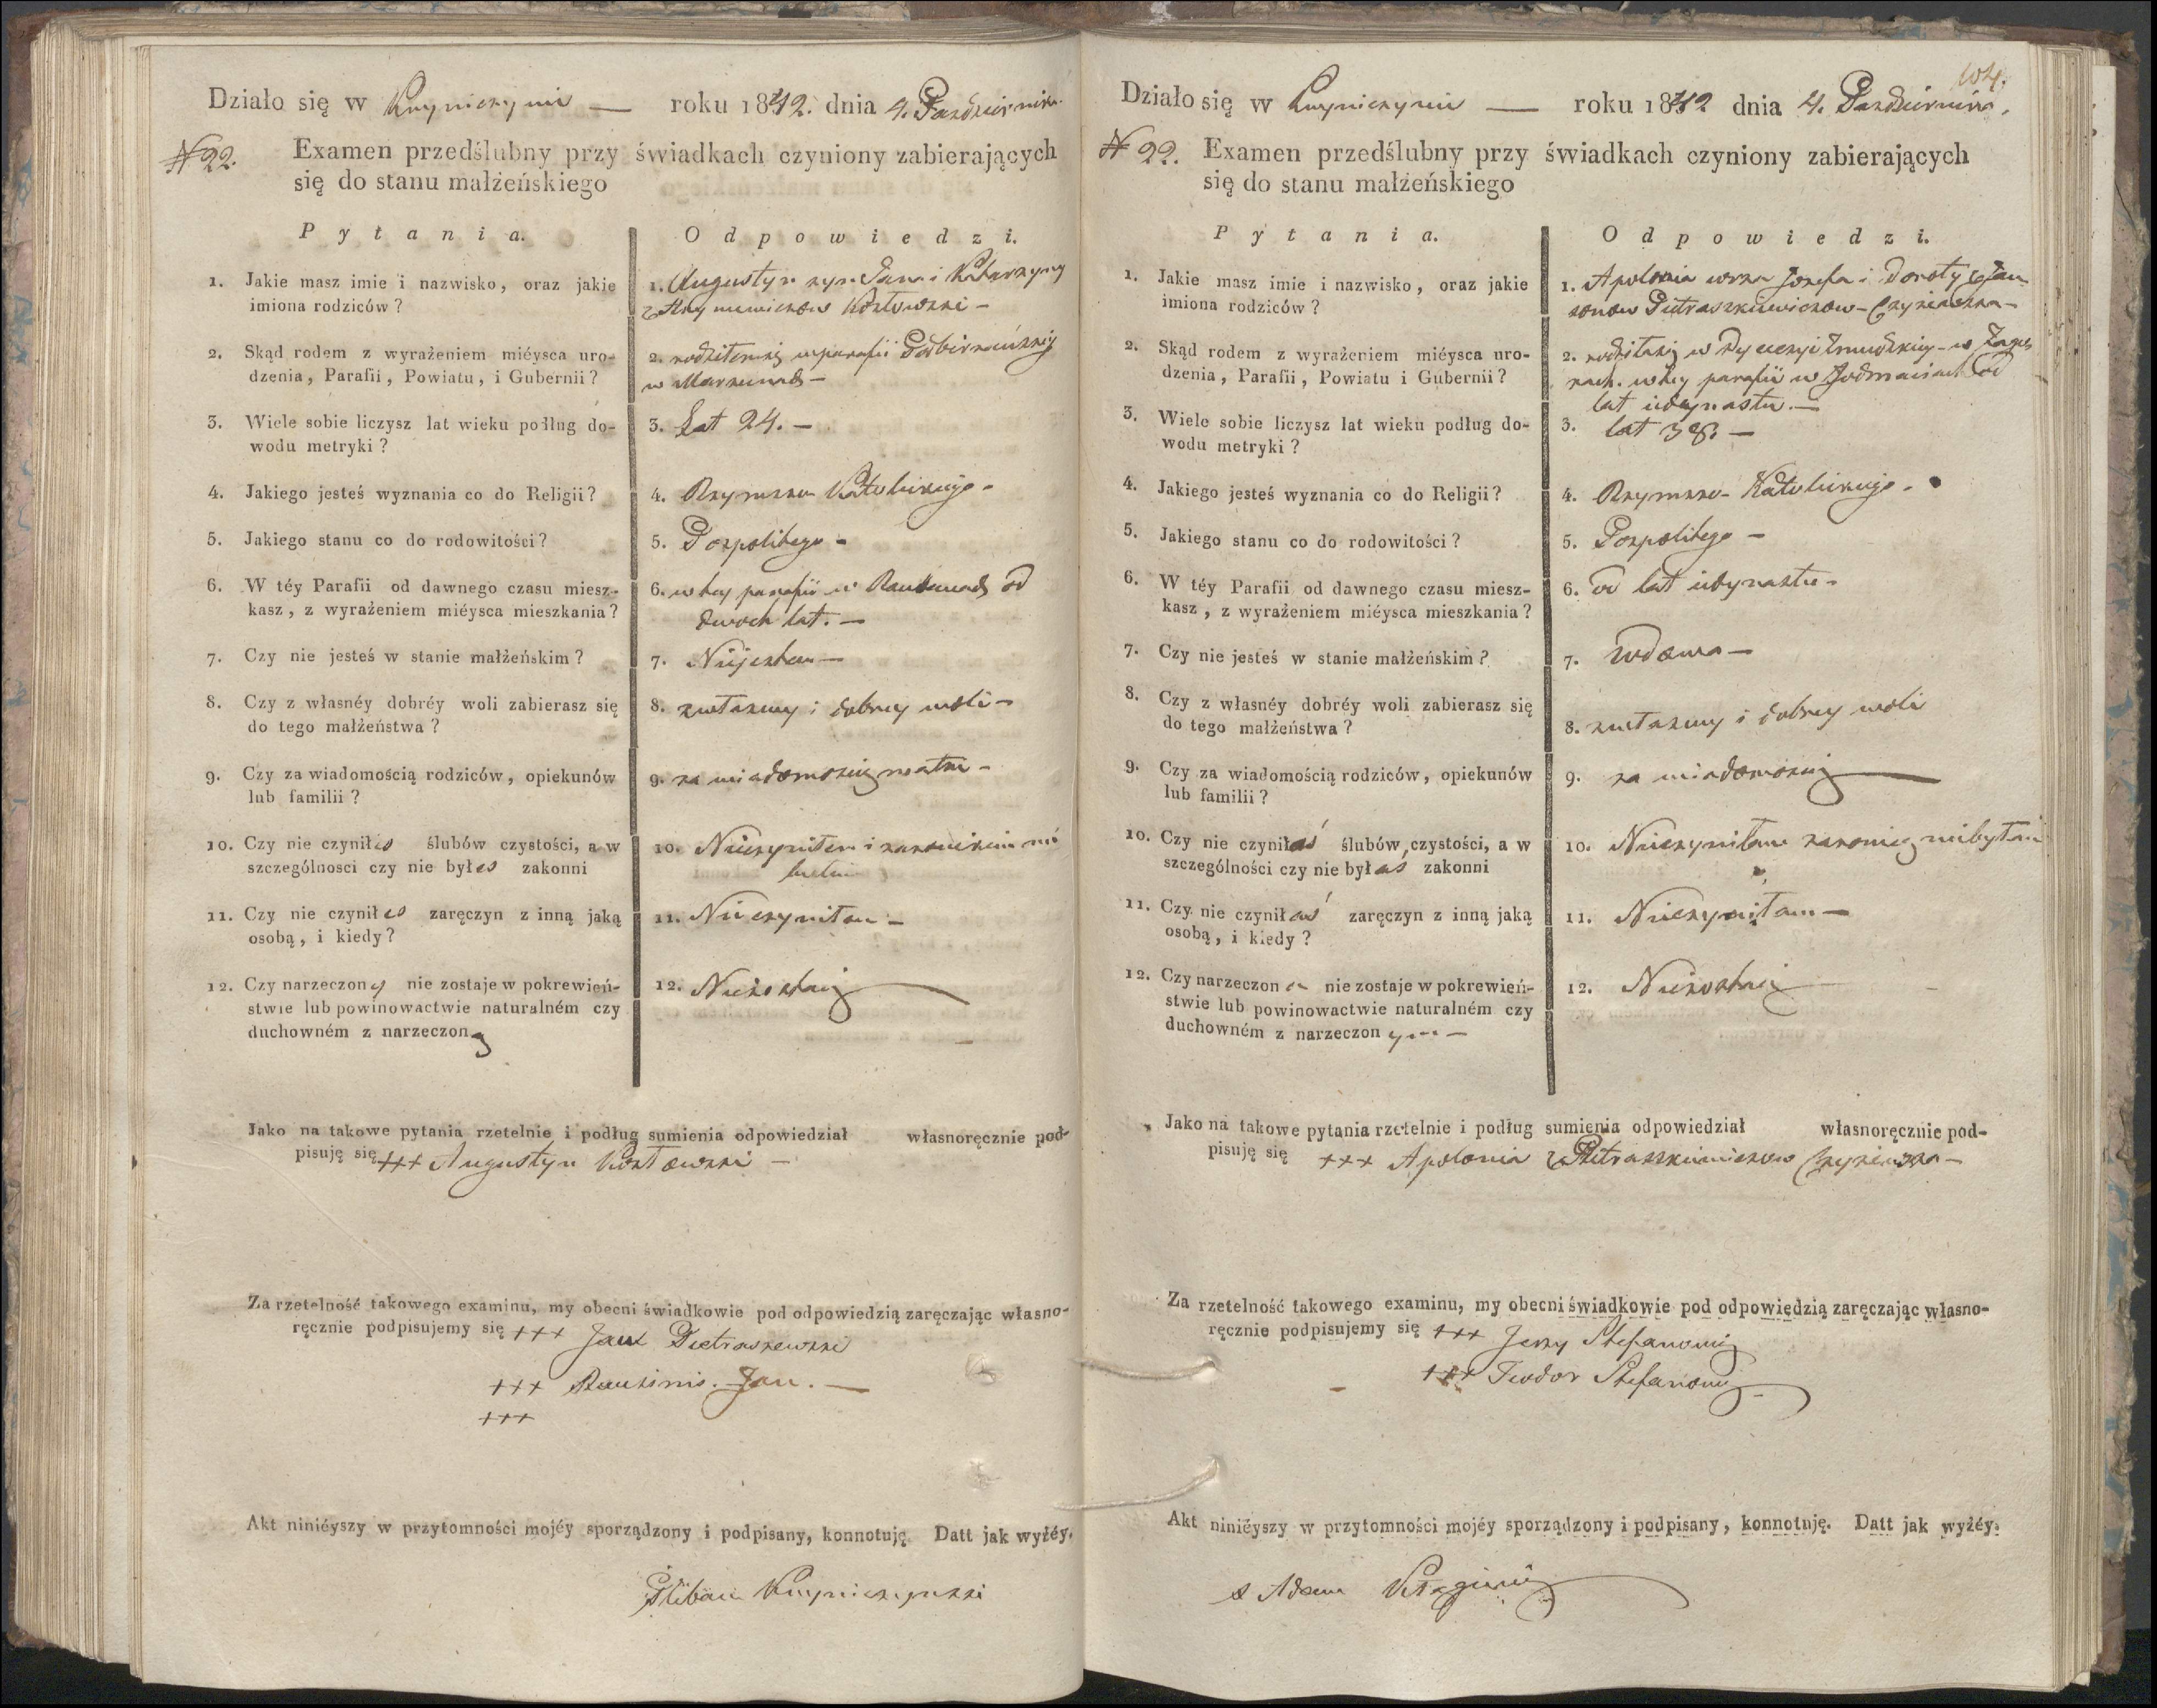 Działo się w Kmyniczynie — roku 1842. dnia 4. Pazdziernika.
N 22. Examen przedślubny przy świadkach czyniony zabierających
się do stanu małżeńskiego
Pytania. Odpowiedzi.
1. Jakie masz imie i nazwisko, oraz jakie
imiona rodziców?
1. Augustyn syn Jana i Katarzyny
Kozłowski —
2. Skąd rodem z wyrażeniem miéysca uro-
dzenia, Parafii, Powiatu, i Gubernii?
2. w parafii
w —
3. Wiele sobie liczysz lat wieku podług do-
wodu metryki?
3. Lat 24. —
4. Jakiego jesteś wyznania co do Religii?
4. Rzymsko Katolickiego -
5. Jakiego stanu co do rodowitości?
5. Pospolitego -
6. W téy Parafii od dawnego czasu miesz-
kasz, z wyrażeniem miéysca mieszkania?
6. w tey parafii w od
dwoch lat. —
7. Czy nie jesteś w stanie małżeńskim?
7. Niejestem —
8. Czy z własnéy dobréy woli zabierasz się
do tego małżeństwa?
8. zwłasney i dobrey woli —
9. Czy za wiadomością rodziców, opiekunów
lub familii?
9. za wiadomością matki —
10. Czy nie czyniłes ślubów czystości, a w
szczególnosci czy nie byłes zakonni
10. Nieczyniłem i zakonnikiem nie
byłem
11. Czy nie czyniłes zaręczyn z inną jaką
osobą, i kiedy?
11. Nieczyniłem —
12. Czy narzeczony nie zostaje w pokrewień-
stwie lub powinowactwie naturalném czy
duchowném z narzeczoną
12. Niezostaię
Jako na takowe pytania rzetelnie i podług sumienia odpowiedział własnoręcznie pod-
pisuję się +++ Augustyn Kozłowski —
Za rzetelność takowego examinu, my obecni świadkowie pod odpowiedzią zaręczając własno-
ręcznie podpisujemy się +++ Jan Pietraszewski
+++ Jan. —
+++
Akt niniéyszy w przytomności mojéy sporządzony i podpisany, konnotuję. Datt jak wyżéy.
Pleban
104.
Działo się w Kmyniczynie — roku 1842 dnia 4. Pazdziernika.
N 22. Examen przedślubny przy świadkach czyniony zabierających
się do stanu małżeńskiego
Pytania. Odpowiedzi.
1. Jakie masz imie i nazwisko, oraz jakie
imiona rodziców?
1. Apolonia corka Jozefa i Doroty z Jan
sonow Pietraszkiewiczow —
2. Skąd rodem z wyrażeniem miéysca uro-
dzenia, Parafii, Powiatu i Gubernii?
2. w Dyecezyi Zmudzkiey - w
w tey parafii w od
lat —
3. Wiele sobie liczysz lat wieku podług do-
wodu metryki?
3. lat 38. —
4. Jakiego jesteś wyznania co do Religii?
4. Rzymsko- Katolickiego -
5. Jakiego stanu co do rodowitości?
5. Pospolitego —
6. W téy Parafii od dawnego czasu miesz-
kasz, z wyrażeniem miéysca mieszkania?
6. od lat
7. Czy nie jesteś w stanie małżeńskim?
7. Wdowa —
8. Czy z własnéy dobréy woli zabierasz się
do tego małżeństwa?
8. zwłasney i dobrey woli
9. Czy za wiadomością rodziców, opiekunów
lub familii?
9. za wiadomością
10. Czy nie czyniłaś ślubów czystości, a w
szczególności czy nie byłaś zakonni
10. Nieczyniłam zakonnicą niebyłam
11. Czy nie czyniłaś zaręczyn z inną jaką
osobą, i kiedy?
11. Nieczyniłam —
12. Czy narzeczona nie zostaje w pokrewień-
stwie lub powinowactwie naturalném czy
duchowném z narzeczonym —
12. Niezostaię
Jako na takowe pytania rzetelnie i podług sumienia odpowiedział własnoręcznie pod-
pisuję się +++ Apolonia z Pietraszkiewiczow
Za rzetelność takowego examinu, my obecni świadkowie pod odpowiedzią zaręczając własno-
ręcznie podpisujemy się +++ Jerzy Stefanowicz
+++ Teodor Stefanowicz
Akt niniéyszy w przytomności mojéy sporządzony i podpisany, konnotuję. Datt jak wyżéy.
Adam